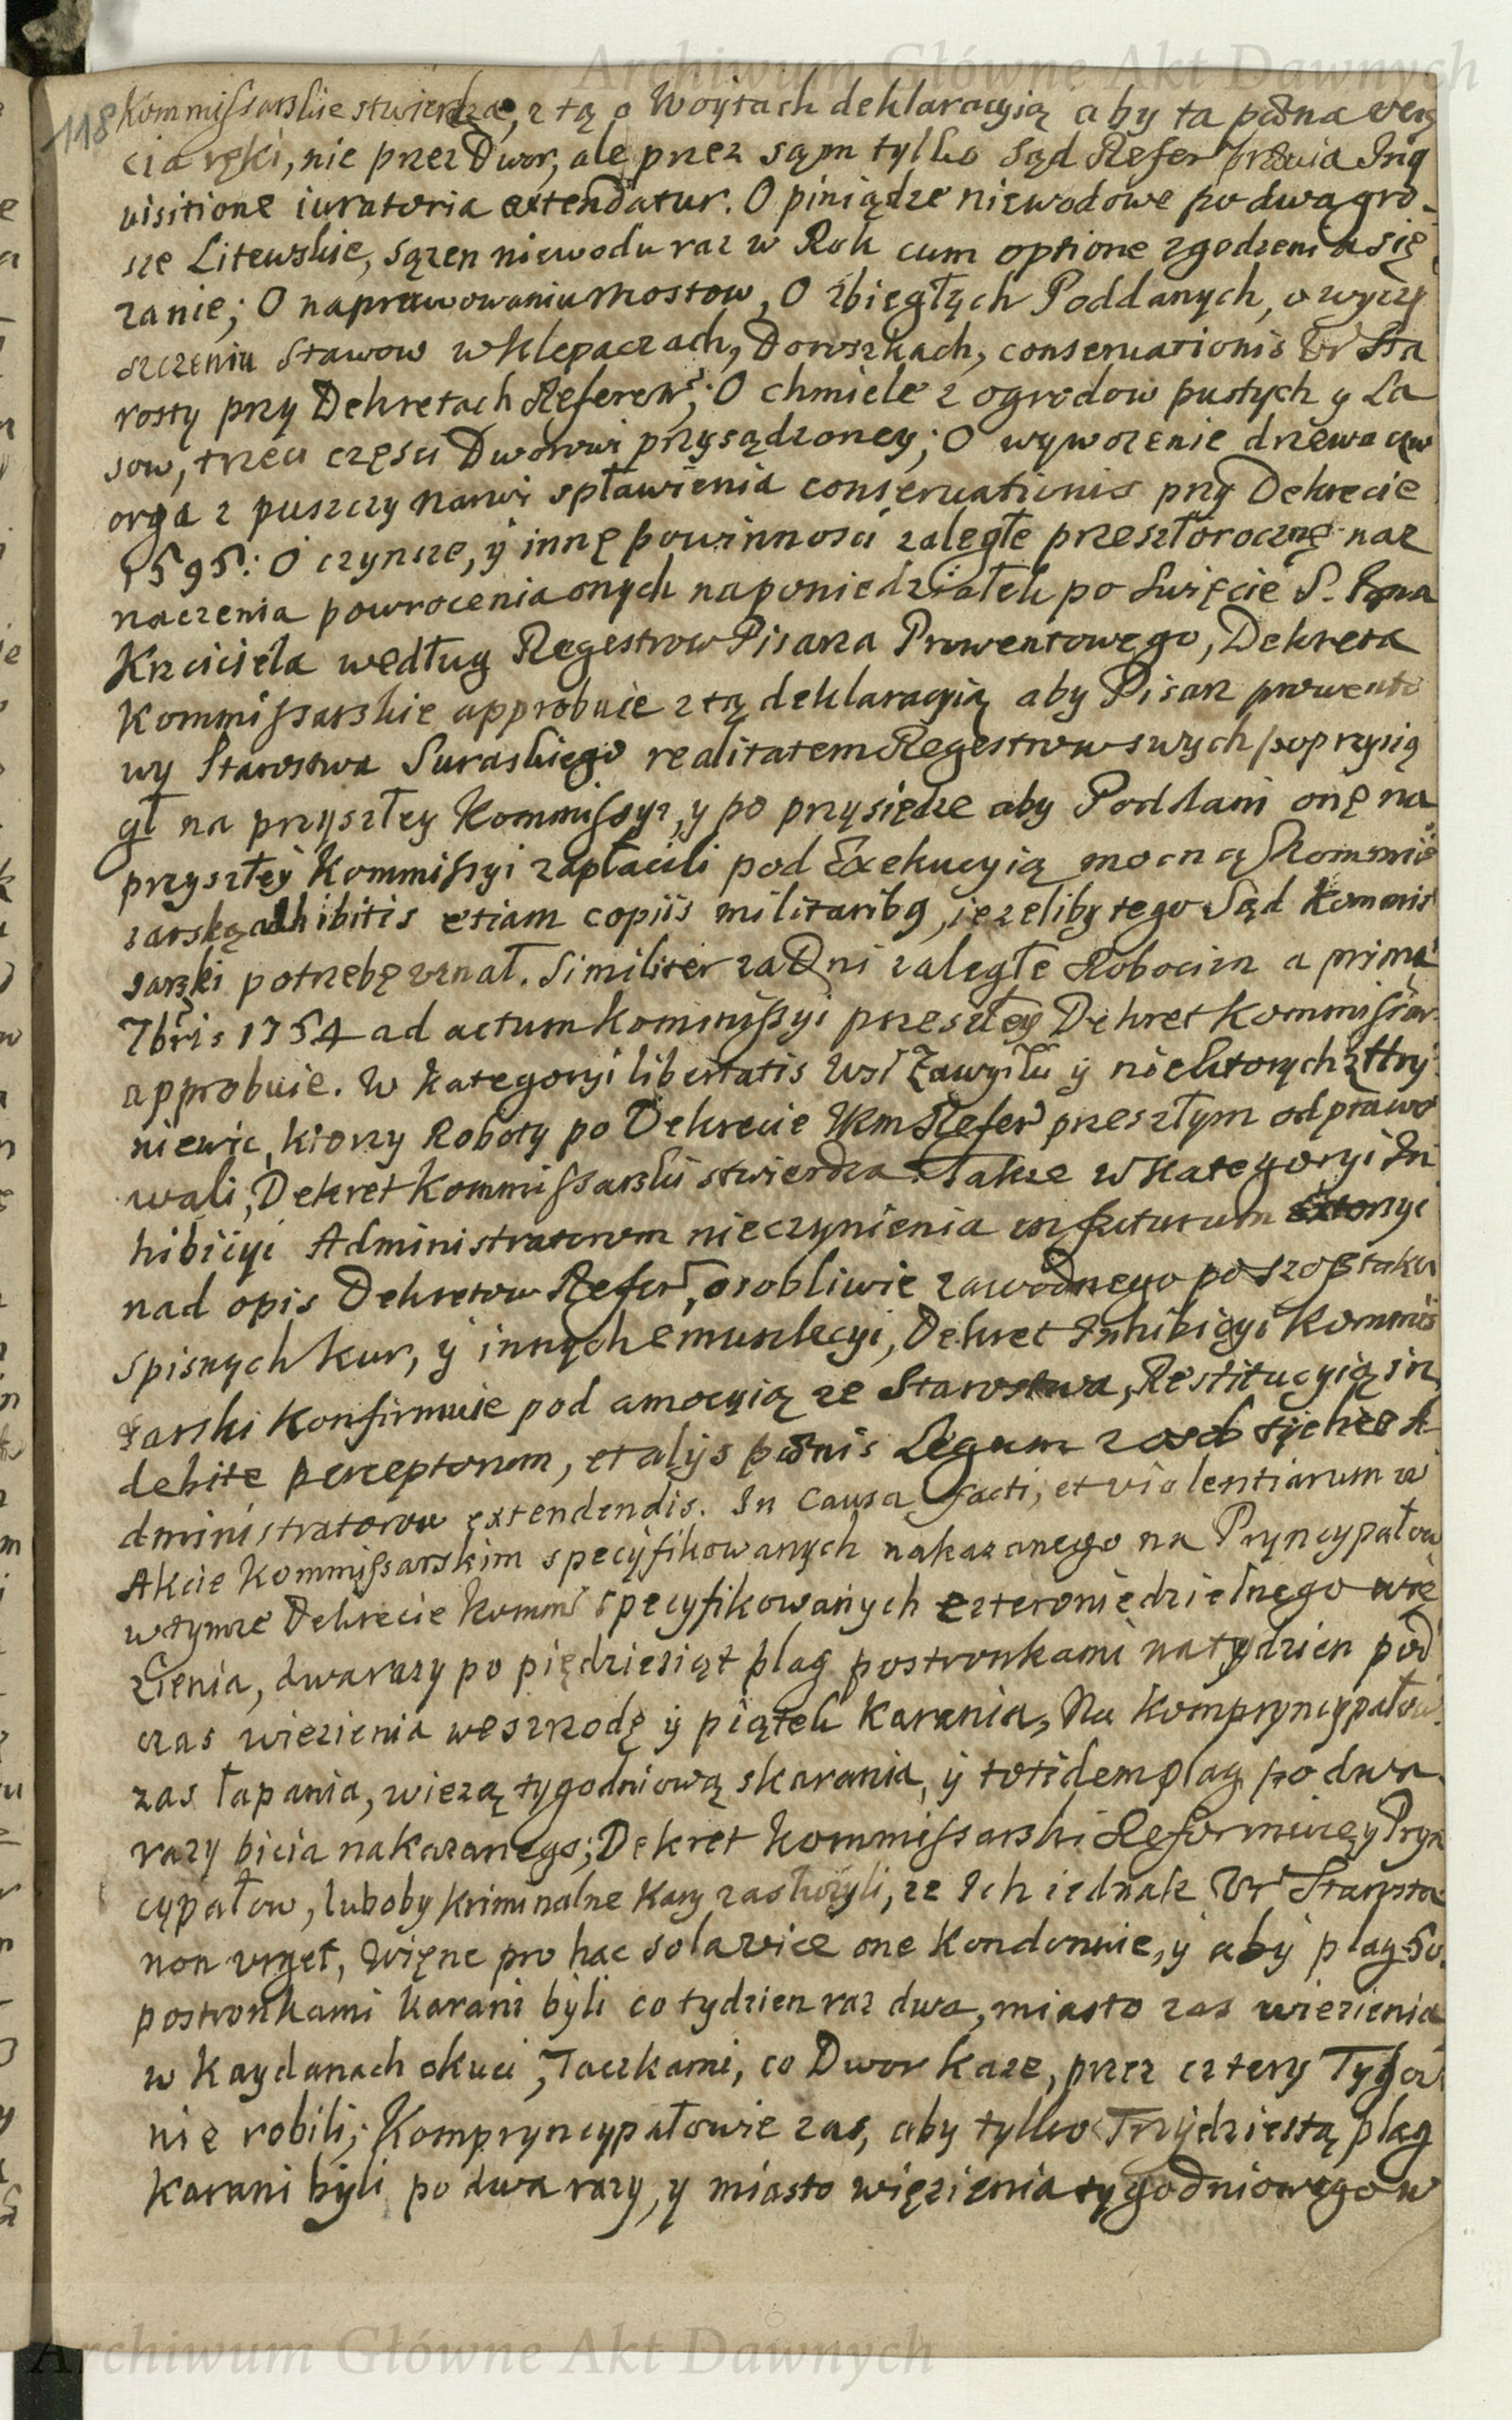 Archiwum Główne Akt Dawnych
118 Kommissarskie stwierdza, z tą o Woytach deklaracyią aby ta pœna ucię
cia ręki, nie przez Dwor, ale przez sąm tylko Sąd Refer Inq
uisitione iuratoria extendatur. O piniądze niewodowe po dwa gro-
sze Litewskie, sązen niewodu raz w Rok cum optione zgodzenia się
zanie; O naprawowaniu mostow, O zbiegłych Poddanych, o wyczy
szczeniu Stawow w Klepaczach, Doroszkach, conservationis Ur Sta
rosty przy Dekretach Referen; O chmiele z ogrodow pustych y La
sow, trzeci częsci Dworowi przysądzoney; O wywozenie drzewa
orga z puszczy Narwi spławienia conservationis przy Dekrecie
1595: O czynsze, y innę powinnosci zaległe przeszłorocznę naz
naczenia powrocenia onych na poniedziałek po Swięcie S. Jana
Krzciciela według Regestrow Pisarza Prowentowego, Dekreta
Kommissarskie approbuie z tą deklaracyią aby Pisarz prowento
wy Starostwa Suraskiego realitatem Regestrow swych poprzysią
gł na przyszłey Kommissyi, y po przysiędze aby Poddani onę na
przyszłey Kommissyi zapłacili pod Exekucyią mocną Kommis
sarską adhibitis etiam copiis militaribq, iezeliby tego Sąd Kommis
sarski potrzebę uznał. Similiter za Dni zaległe Robocizn a prima
7bris 1754 ad actum Kommissyi przeszłey Dekret Kommissar
approbuie. W kategoryi libertatis Wsi Zawyki y niektorych z Hry
niewic, ktorzy Roboty po Dekrecie Nem Refer przeszłym odprawo
wali, Dekret Kommissarski stwierdza. Takze w Kategoryi In
hibicyi Administratorom nieczynienia in futurum
nad opis Dekretow Refer, osobliwie zawodnego po szostaku
spisnych kur, y innych emunkcyi, Dekret Inhibicyi Kommis
sarski Konfirmuie pod amocyią ze Starostwa, Restitucyią in
debite perceptorum, et alijs pœnis Legum z osob tychze A-
dministratorow extendendis. In Causa facti, et violentiarum w
Akcie Kommissarskim specyfikowanych nakazanego na Pryncypałow
w tymze Dekrecie Komm specyfikowanych czteroniedzielnego wię
zienia, dwa razy po piędziesiąt plag postronkami na tydzien pod
czas wiezienia we szrodę y piątek Karania, Na Kompryncypałow
zas łapania, wiezą tygodniową skarania, y totidem plag po dwa
razy bicia nakazanego; Dekret Kommissarski Reformuie, y Pryn
cypałow, luboby kriminalne Kary zasłuzyli, ze Ich iednak Ur Starosta
non urget, Więnc pro hac sola vice one Kondonuie, y aby plag 50.
postronkami karani byli co tydzien raz dwa, miasto zas wiezienia
w Kaydanach okuci, Taczkami, co Dwor kaze, przez cztery Tygod
nie robili; Kompryncypałowie zas, aby tylko Trzydziestą plag
karani byli po dwa razy, y miasto więzienia tygodniowego w
Archiwum Główne Akt Dawnych